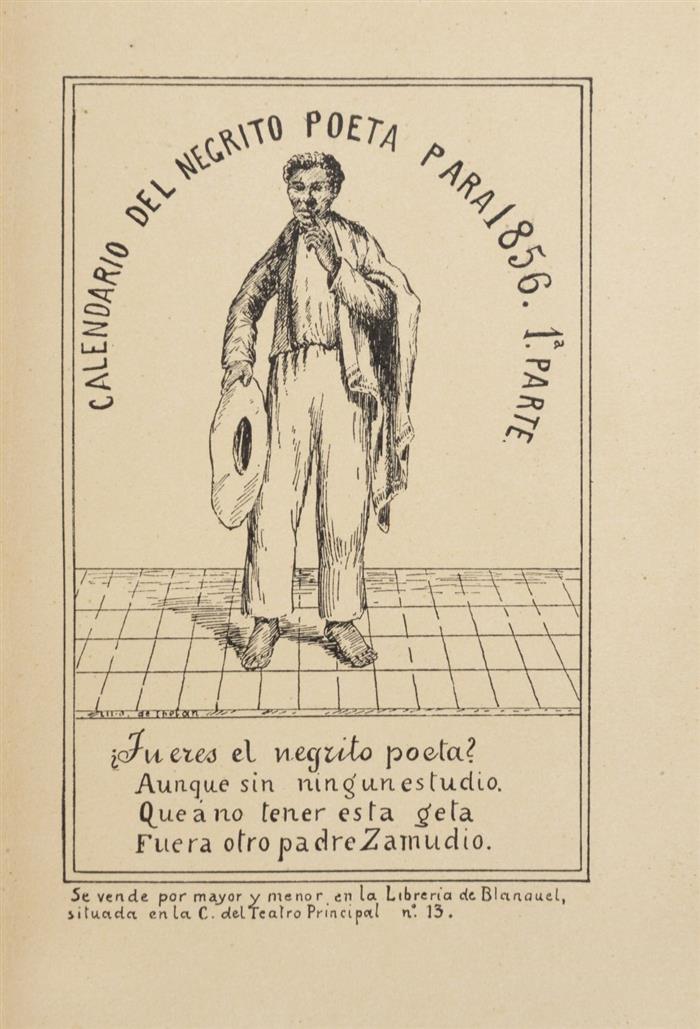 CALENDARIO DEL NEGRITO POETA PARA 1856. 1ª PARTE.
de
¿Tu eres el negrito poeta?
Aunque sin ningun estudio.
Que á no tener esta geta
Fuera otro padre Zamudio.
Se vende por mayor y menor en la Libreria de Blanquel,
situada en la C. del Teatro Principal nº 13.